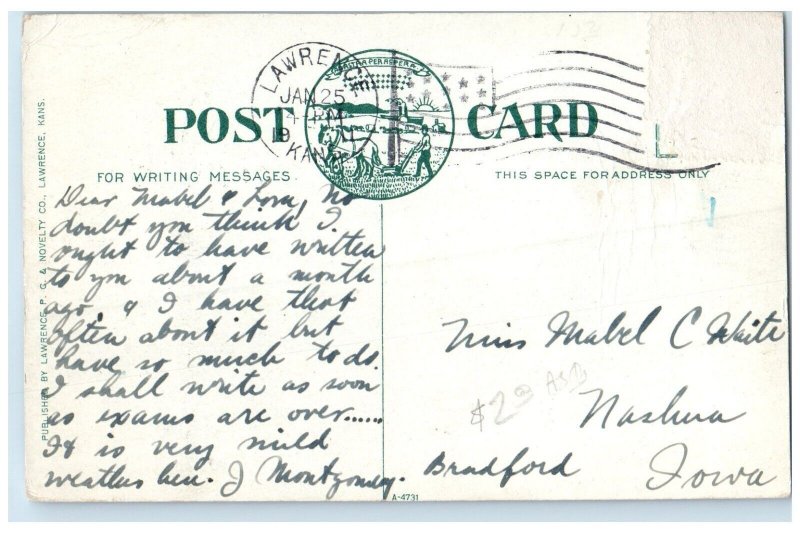 LAWRENCE
JAN 25
4-PM
KANS
AD ASTRA PER ASPERA
POST CARD
FOR WRITING MESSAGES
THIS SPACE FOR ADDRESS ONLY
PUBLISHED BY LAWRENCE P. C. & NOVELTY CO., LAWRENCE, KANS.
Dear Mabel & Lora, no
doubt you think I
ought to have written
to you about a month
ago. & I have that
often about it but
have so much to do.
I shall write as soon
as exams are over......
It is very mild
weather here. J Montgomery.
Miss Mabel C Waite
Nashua
Bradford Iowa
$2.00 ASD
L
A-4731